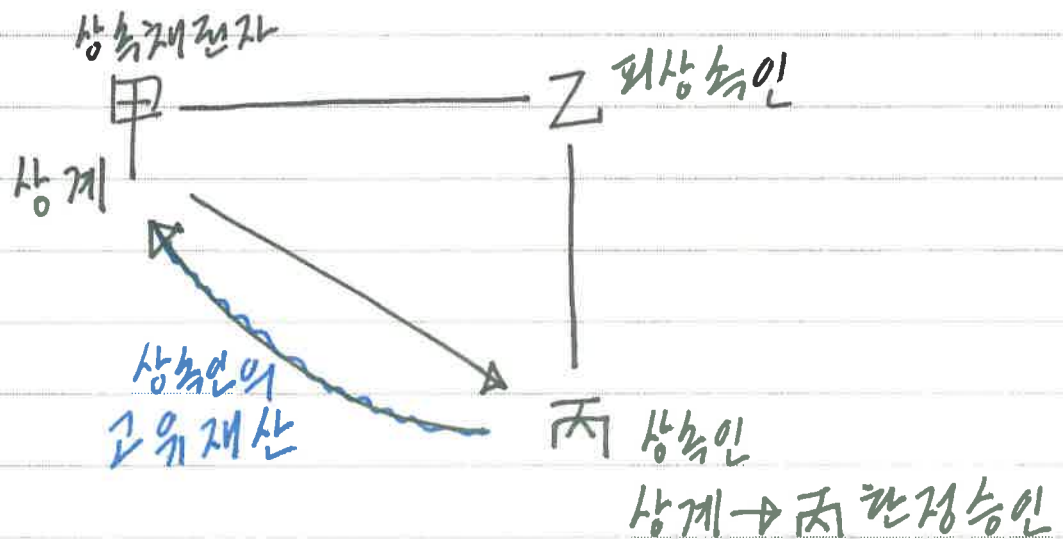 상속채권자
甲
乙 피상속인
상계
상속인의
고유재산
丙 상속인
상계→丙 한정승인